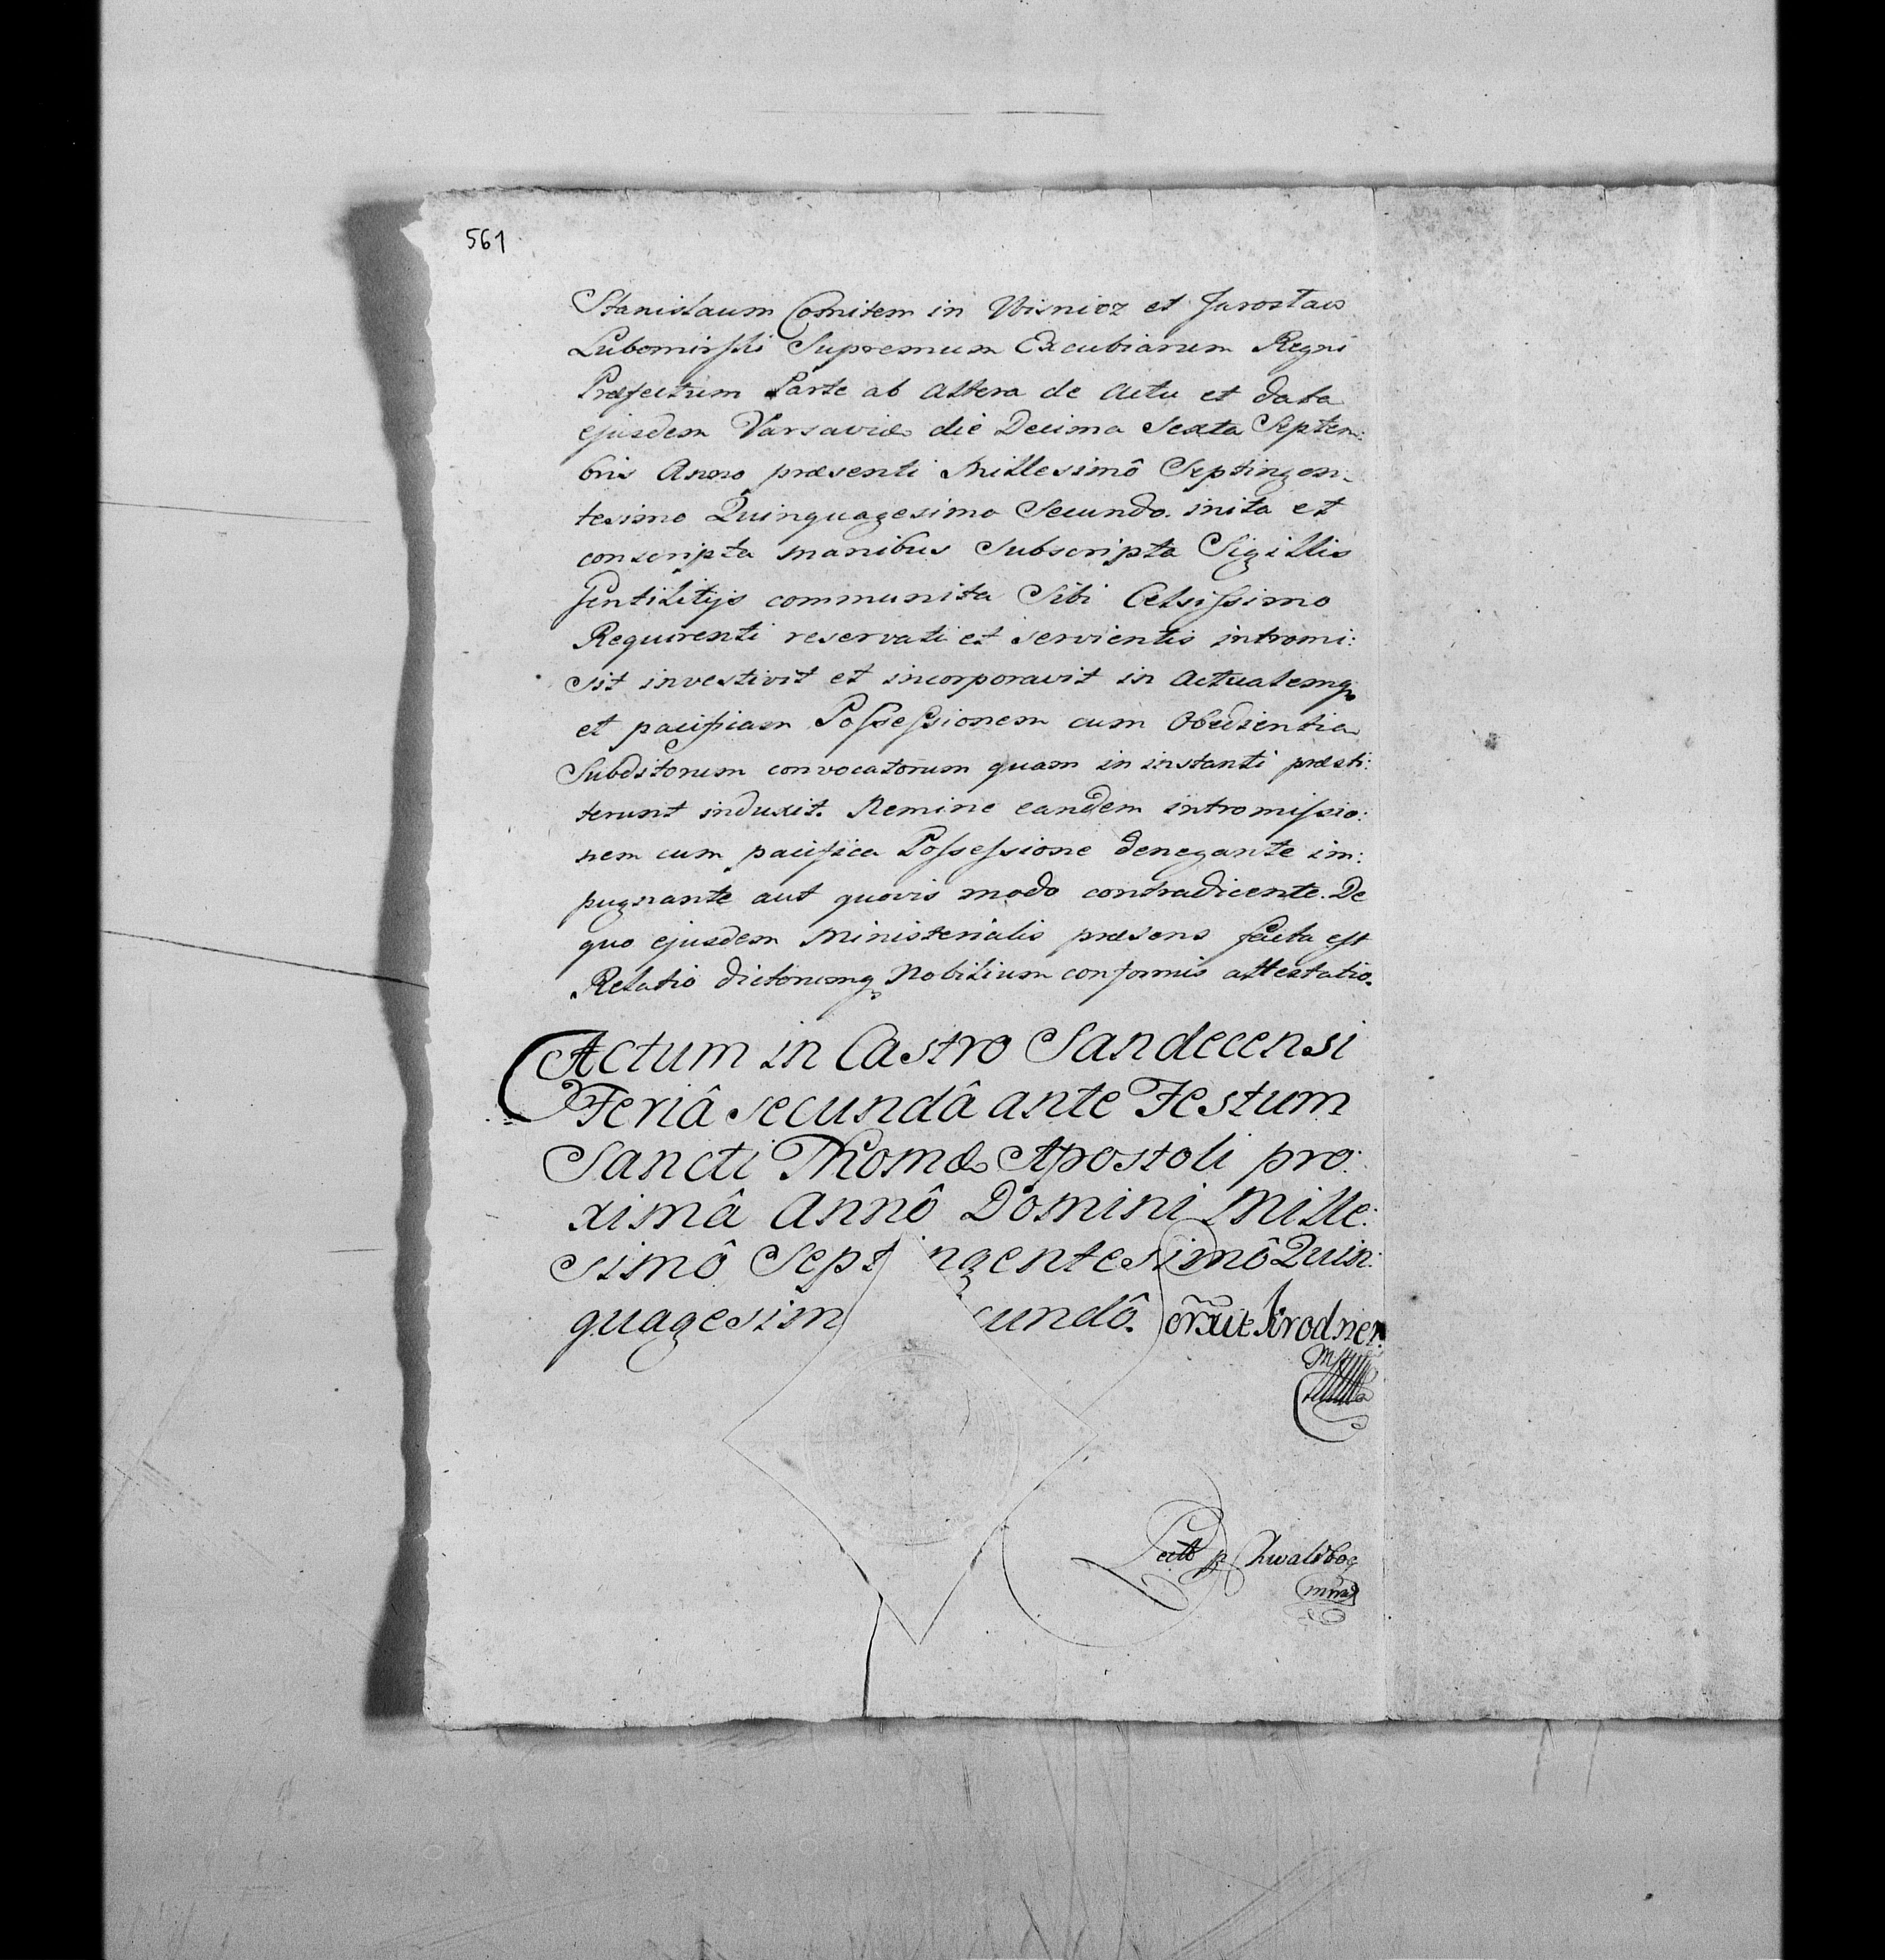 561
Stanislaum Comitem in Wisnicz et Jarosław
Lubomirski Supremum Excubiarum Regni
Præfectum Parte ab Altera de Actu et data
ejusdem Varsaviæ die Decima Sexta Septem:
bris Anno præsenti Millesimô Septingen-
tesimo Quinquagesimo Secundo. inita et
conscripta manibus Subscripta Sigillis
Gentilitijs communita Sibi Celsissimo
Requirenti reservati et servientis intromi:
sit investivit et incorporavit in Actualemq
et pacificam Possessionem cum Obedientia
Subditorum convocatorum quam in instanti præsti:
terunt induxit. Nemine eandem intromissio:
nem cum pacifica Possessione denegante im:
pugnante aut quovis modo contradicente. De
quo ejusdem Ministerialis præsens facta est
Relatio dictorumq Nobilium conformis attestatio.
Actum in Castro Sandecensi
Feriâ secundâ ante Festum
Sancti Thomæ Apostoli pro:
ximâ Annô Domini Mille:
simô Septingentesimô Quin:
quagesim cundô.
Lect p Chwalibog
mpria